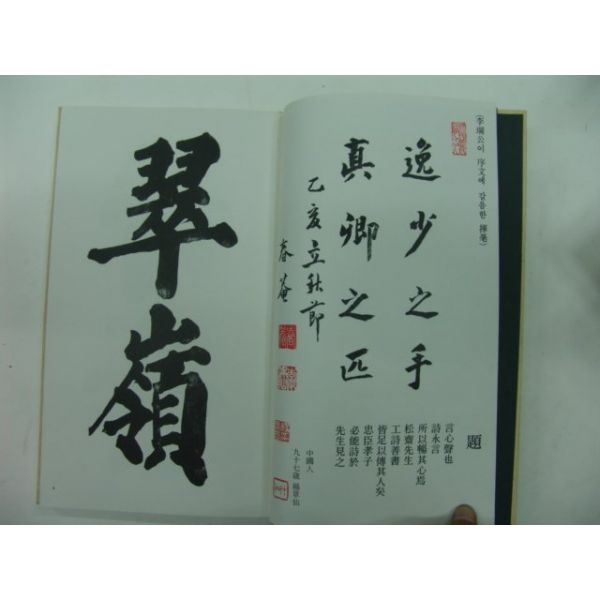 翠嶺
(李
公이 序文에 갈음한 揮毫)
逸少之手
真卿之匹
乙亥立秋節
春菴
題
言心聲也
詩永言
所以暢其心焉
松齋先生
工詩善書
皆足以傳其人矣
忠臣孝子
必能詩於
先生見之
中國人
九十七歲 楊草仙